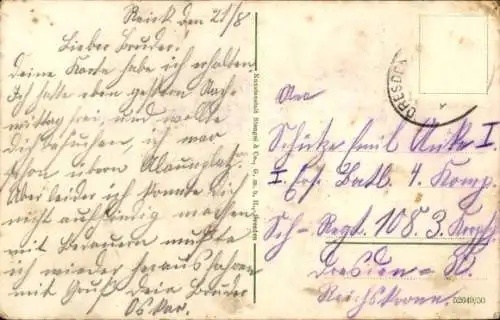 Reick den 21/8
Lieber Bruder!
Deine Karte habe ich erhalten.
Ich hatte eben gestern Nach-
mittag frei, und wollte
Dich besuchen, ich war
schon überm Alaunplatz.
Aber leider ich konnte Dich
nicht ausfindig machen
mit Bedauern mußte
ich wieder heraus fahren
mit Gruß Dein Bruder
Oskar.
Kunstanstalt Stengel & Co., G. m. b. H., Dresden
DRESDEN
An
Schütze Emil
I. Ers. Batl. 4. Komp.
Sch-Regt. 108. 3.
Dresden-N.
Reichskrone.
52649/50